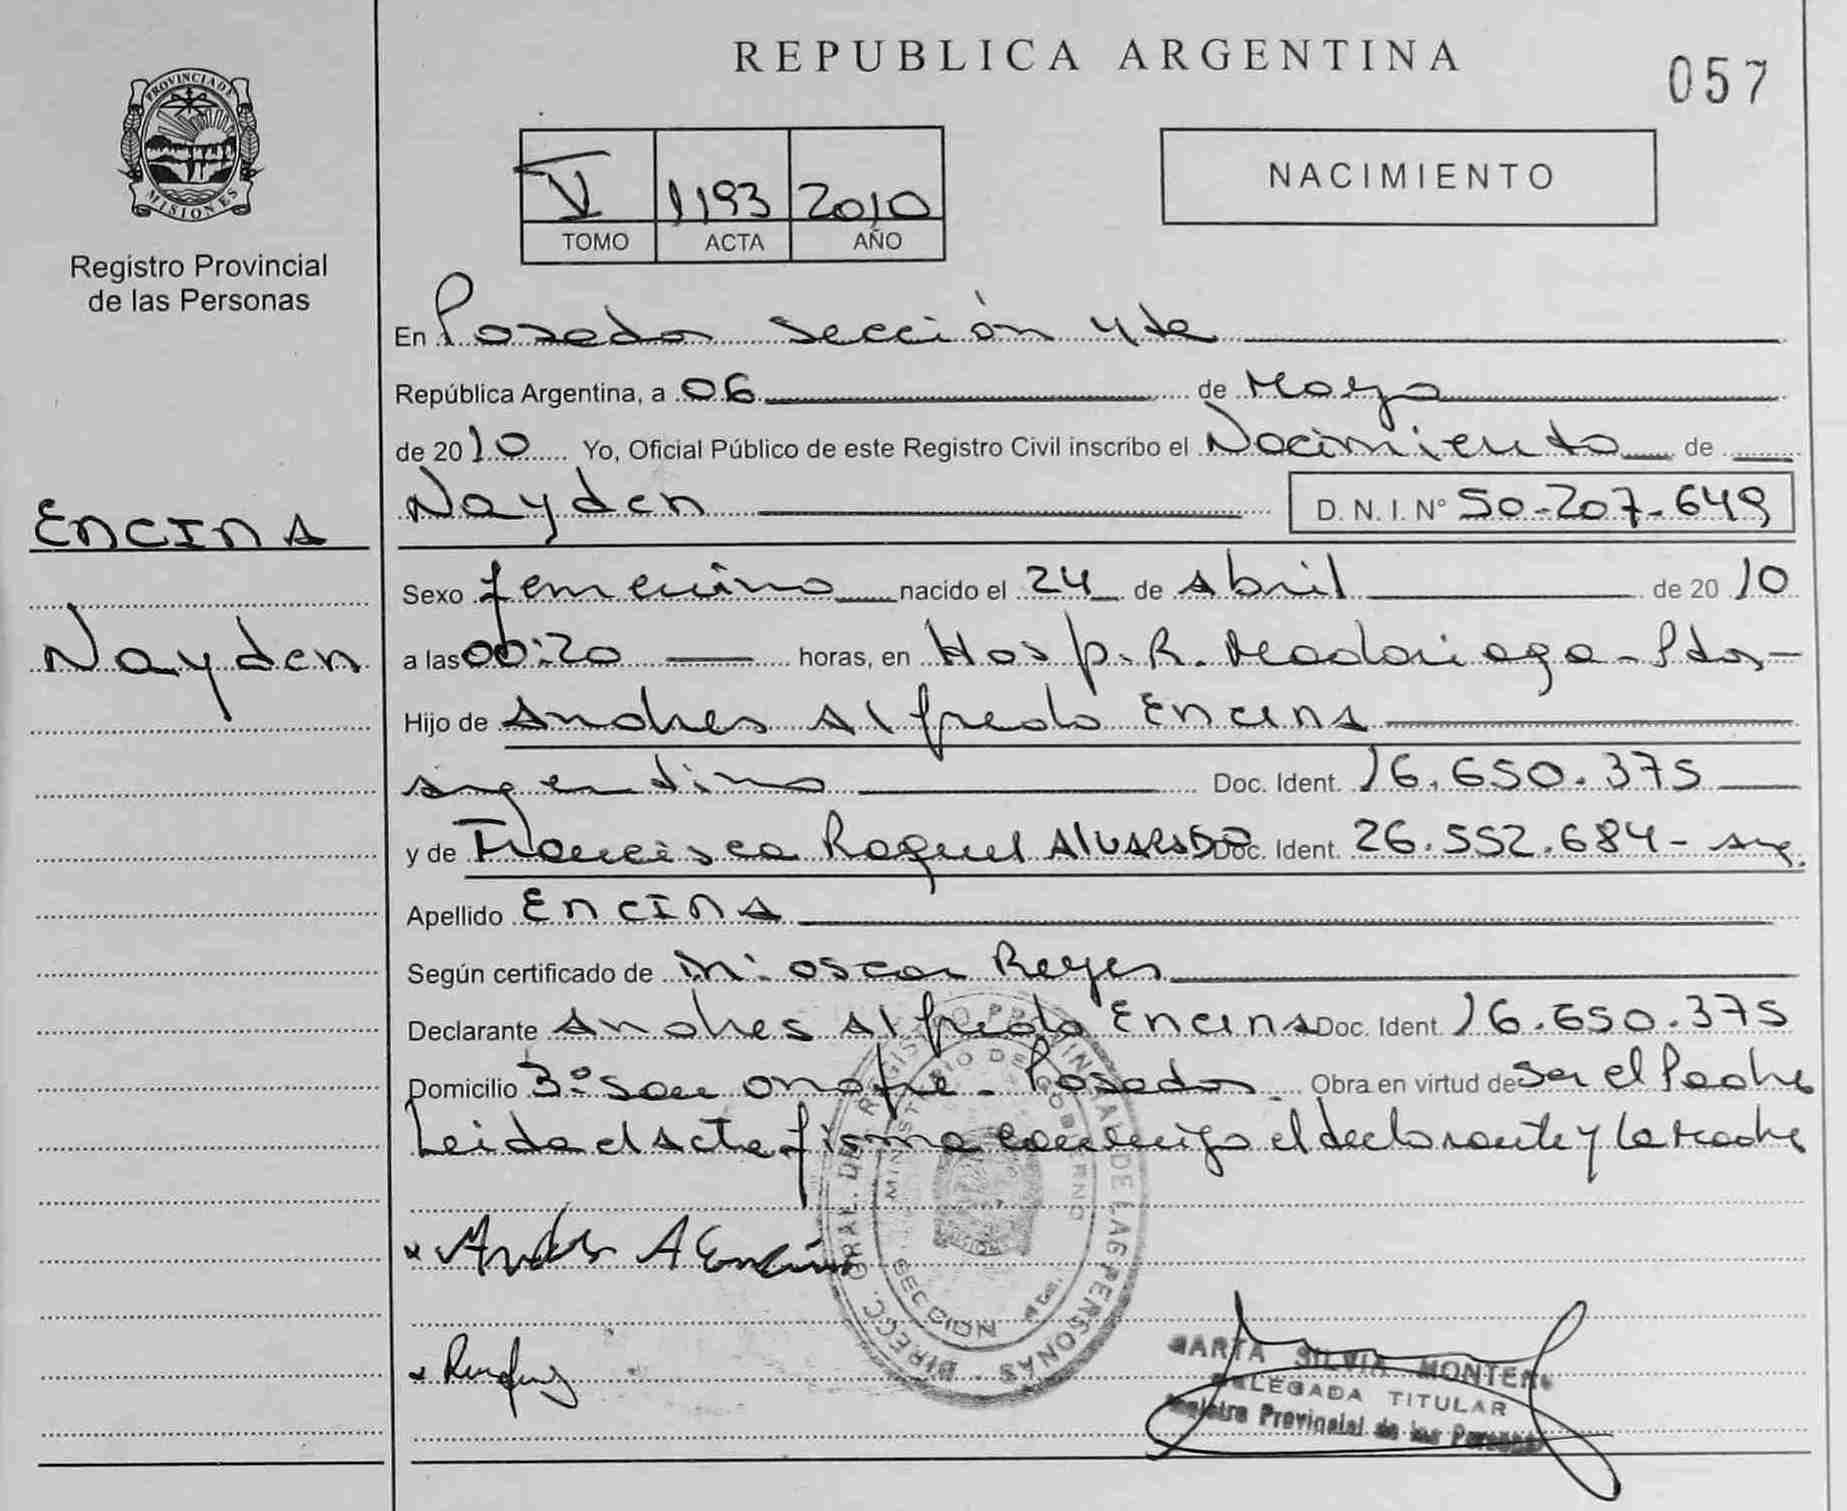 REPUBLICA ARGENTINA
057
PROVINCIA DE
MISIONES
Registro Provincial
de las Personas
V 1193 2010
TOMO ACTA AÑO
NACIMIENTO
En Posadas sección 4ta
República Argentina, a 06 de Mayo
de 2010 Yo, Oficial Público de este Registro Civil inscribo el Nacimiento de
Nayden D.N.I. Nº 50-207-649
ENCINA
Nayden
Sexo femenino nacido el 24 de Abril de 2010
a las 00:20 horas, en Hosp. R. Madariaga - Pdas -
Hijo de Andres Alfredo Encina
argentino Doc. Ident. 16.650.375
y de Francisca Raquel Doc. Ident. 26.552.684 - arg.
Apellido ENCINA
Según certificado de Oscar Reyes
Declarante Andres Alfredo Encina Doc. Ident. 16.650.375
Domicilio San Onofre - Posadas Obra en virtud de Ser el Padre
Leida el Acta firma conmigo el declarante y la Madre
DIRECC. GRAL. DEL REGISTRO PROVINCIAL DE LAS PERSONAS
MINISTERIO DE GOBIERNO
SECCION 4ta.
x Andres A Encina
MARTA SILVIA
DELEGADA TITULAR
Registro Provincial de las Personas